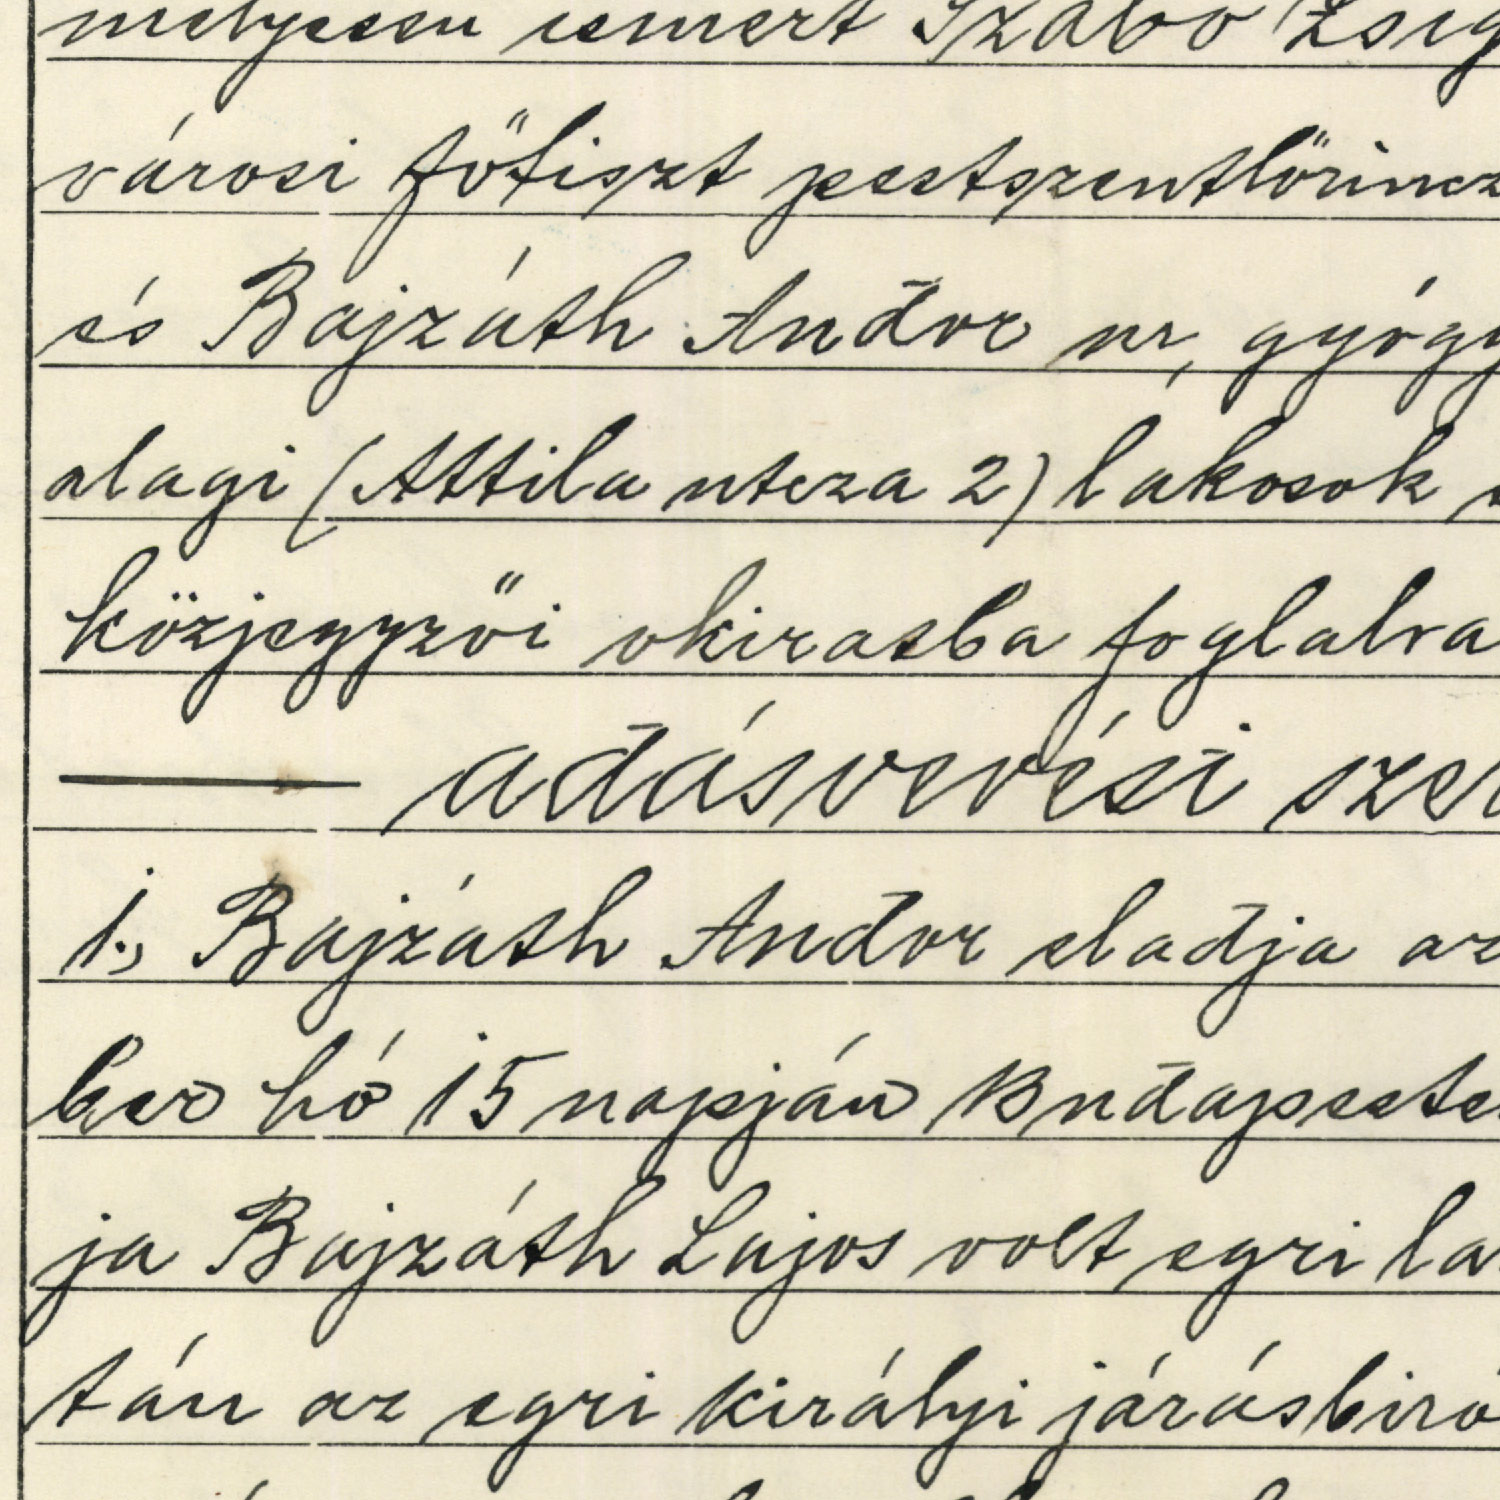 melyesen ismert Szabó Zsig
városi főtiszt pestszentlőrincz
és Bajzáth Andor úr, gyógy
alagi (Attila utcza 2) lakosok
közjegyzői okiratba foglalva
— adásvevési szer
1., Bajzáth Andor eladja az
ber hó 15 napján Budapesten
ja Bajzáth Lajos volt egri la
tán az egri királyi járásbiró